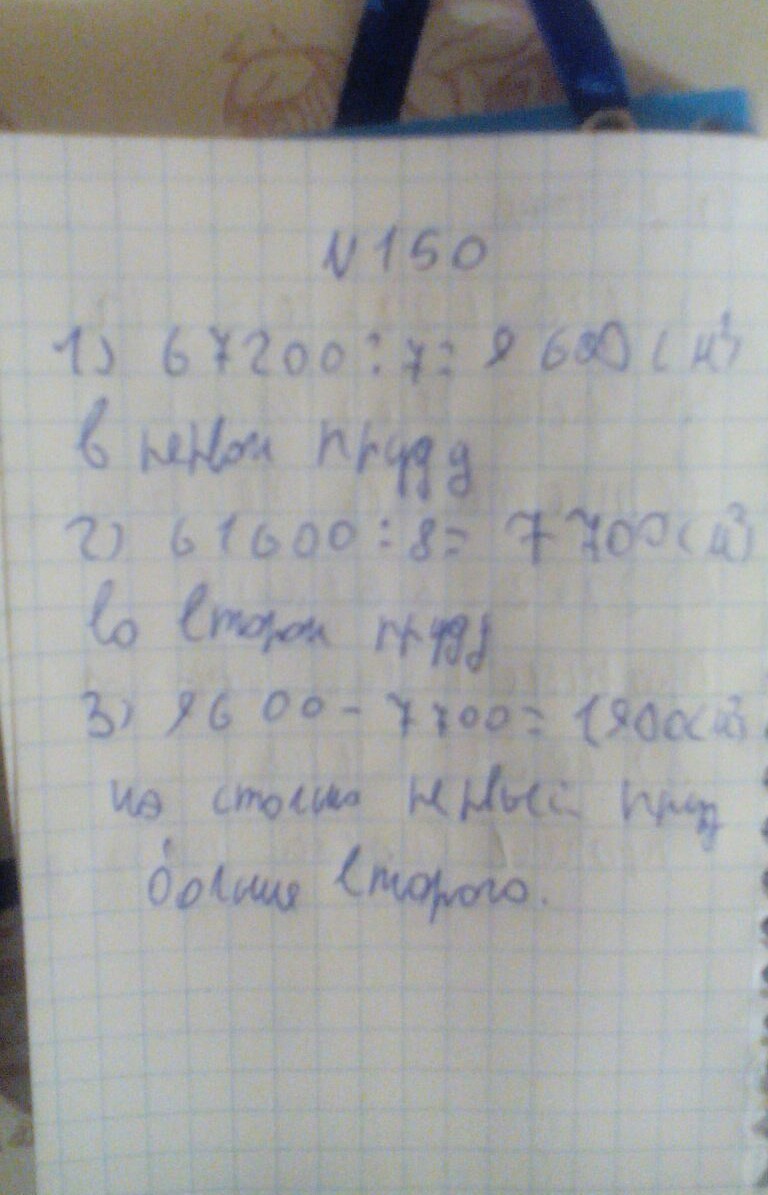 N 150
1) 67200 : 7 = 9600 (м³)
в первом пруду
2) 61600 : 8 = 7700 (м³)
во втором пруду
3) 9600 - 7700 = 1900 (м³)
на столько первый пруд
больше второго.